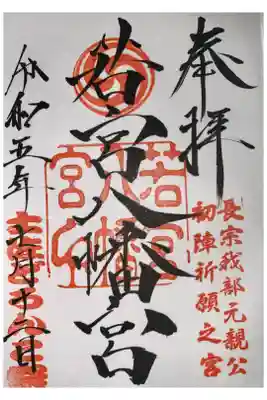 奉拝
長宗我部元親公
初陣祈願之宮
若宮八幡宮
令和五年
十月十二日